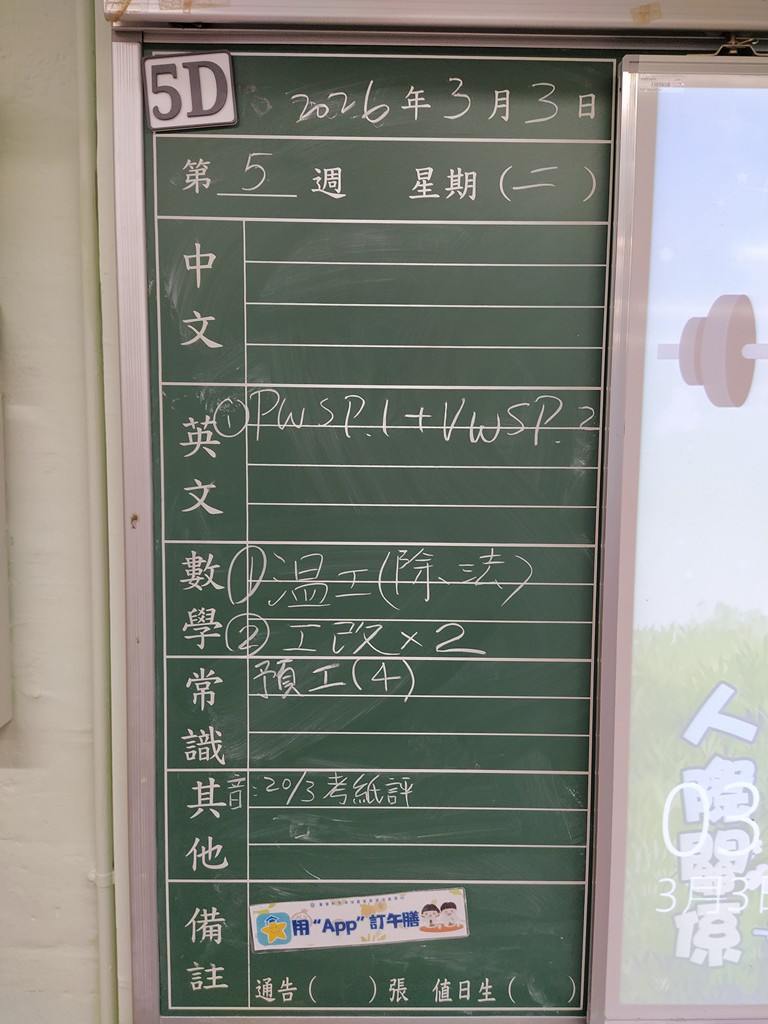 5D
2026年3月3日
第 5 週 星期(二)
中文
英文 ① PWS P.1 + VWS P.2
數學 ① 温工(除法)
② 工改×2
常識 預工(4)
其他 音:20/3 考紙評
備註
用“App”訂午膳
通告( )張 值日生( )
人際關係
03
3月3日